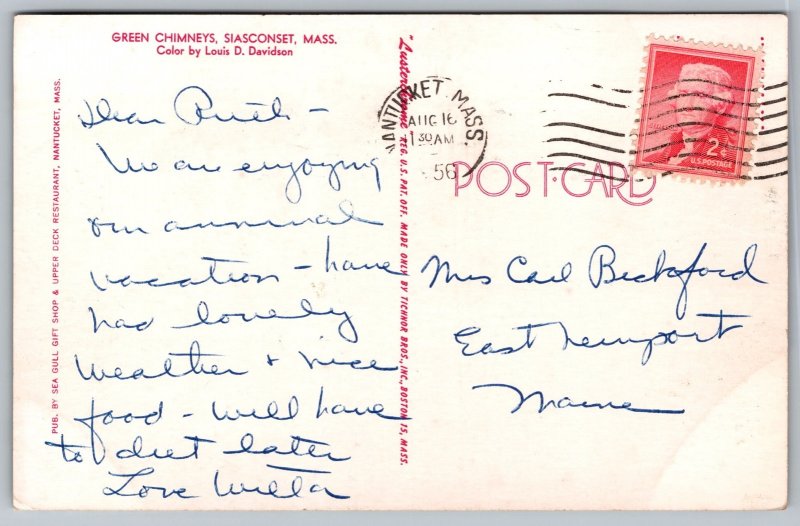 GREEN CHIMNEYS, SIASCONSET, MASS.
Color by Louis D. Davidson
PUB. BY SEA GULL GIFT SHOP & UPPER DECK RESTAURANT, NANTUCKET, MASS.
Dear Ruth -
We are enjoying
our annual
vacation - have
had lovely
weather + nice
food - will have
to diet later
Love Willa
"Lusterchrome" REG. U.S. PAT. OFF. MADE ONLY BY TICHNOR BROS., INC., BOSTON 15, MASS.
NANTUCKET MASS.
AUG 16
1 30 AM
56
2¢
U.S. POSTAGE
POST-CARD
Mrs Carl Beckford
East Newport
Maine